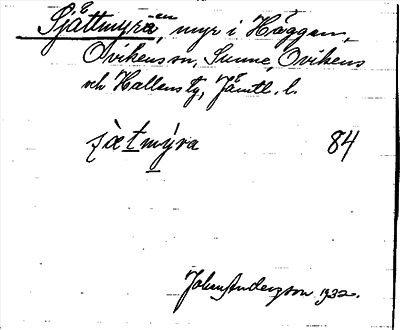 Sjättmyren, myr i Häggen,
Ovikens sn, Sunne, Ovikens
och Hallens tg, Jämtl. l.
84
Johan Andersson 1932.